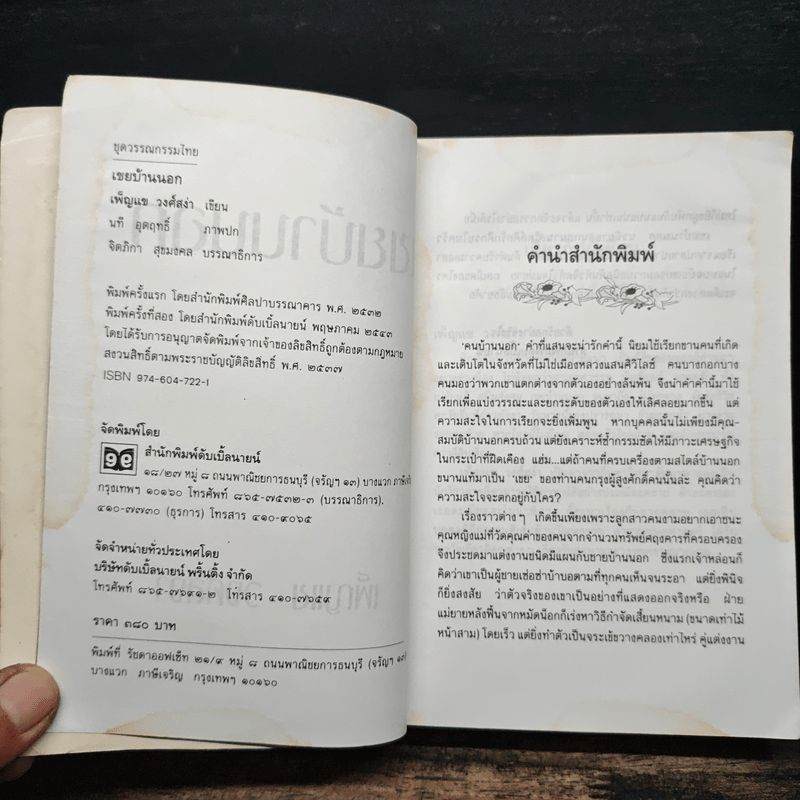 ชุดวรรณกรรมไทย
เขยบ้านนอก
เพ็ญแข วงศ์สง่า เขียน
นที อุตฤทธิ์ ภาพปก
จิตภิกา สุขมงคล บรรณาธิการ
พิมพ์ครั้งแรก โดยสำนักพิมพ์ศิลปาบรรณาคาร พ.ศ. ๒๕๓๒
พิมพ์ครั้งที่สอง โดยสำนักพิมพ์ดับเบิ้ลนายน์ พฤษภาคม ๒๕๔๓
โดยได้รับการอนุญาตจัดพิมพ์จากเจ้าของลิขสิทธิ์ถูกต้องตามกฎหมาย
สงวนสิทธิ์ตามพระราชบัญญัติลิขสิทธิ์ พ.ศ. ๒๕๓๗
ISBN 974-604-722-1
จัดพิมพ์โดย
สำนักพิมพ์ดับเบิ้ลนายน์
๑๘/๒๗ หมู่ ๘ ถนนพาณิชยการธนบุรี (จรัญฯ ๑๓) บางแวก ภาษีเจริญ
กรุงเทพฯ ๑๐๑๖๐ โทรศัพท์ ๘๖๕-๗๕๓๒-๓ (บรรณาธิการ).
๔๑๐-๗๗๓๐ (ธุรการ) โทรสาร ๔๑๐-๙๐๖๕
จัดจำหน่ายทั่วประเทศโดย
บริษัทดับเบิ้ลนายน์ พริ้นติ้ง จำกัด
โทรศัพท์ ๘๖๕-๗๖๙๑-๒ โทรสาร ๔๑๐-๗๖๕๙
ราคา ๓๘๐ บาท
พิมพ์ที่ รัชดาออฟเซ็ท ๒๑/๙ หมู่ ๘ ถนนพาณิชยการธนบุรี (จรัญฯ ๑๓)
บางแวก ภาษีเจริญ กรุงเทพฯ ๑๐๑๖๐
คำนำสำนักพิมพ์
'คนบ้านนอก' คำที่แสนจะน่ารักคำนี้ นิยมใช้เรียกขานคนที่เกิด
และเติบโตในจังหวัดที่ไม่ใช่เมืองหลวงแสนศิวิไลซ์ คนบางกอกบาง
คนมองว่าพวกเขาแตกต่างจากตัวเองอย่างล้นพ้น จึงนำคำคำนี้มาใช้
เรียกเพื่อแบ่งวรรณะและยกระดับของตัวเองให้เลิศลอยมากขึ้น แต่
ความสะใจในการเรียกจะยิ่งเพิ่มพูน หากบุคคลนั้นไม่เพียงมีคุณ-
สมบัติบ้านนอกครบถ้วน แต่ยังเคราะห์ซ้ำกรรมซัดให้มีภาวะเศรษฐกิจ
ในกระเป๋าที่ฝืดเคือง แฮ่ม...แต่ถ้าคนที่ครบเครื่องตามสไตล์บ้านนอก
ขนานแท้มาเป็น 'เขย' ของท่านคนกรุงผู้สูงศักดิ์คนนั้นล่ะ คุณคิดว่า
ความสะใจจะตกอยู่กับใคร?
เรื่องราวต่างๆ เกิดขึ้นเพียงเพราะลูกสาวคนงามอยากเอาชนะ
คุณหญิงแม่ที่วัดคุณค่าของคนจากจำนวนทรัพย์ศฤงคารที่ครอบครอง
จึงประชดมาแต่งงานชนิดมีแผนกับชายบ้านนอก ซึ่งแรกเจ้าหล่อนก็
คิดว่าเป็นผู้ชายเซ่อซ่าบ้าบอตามที่ทุกคนเห็นจนระอา แต่ยิ่งพินิจ
ก็ยิ่งสงสัย ว่าตัวจริงของเขาเป็นอย่างที่แสดงออกจริงหรือ ฝ่าย
แม่ยายหลังฟื้นจากมัดน็อกก็เร่งหาวิธีกำจัดเสี้ยนหนาม (ขนาดเท่าไม้
หน้าสาม) โดยเร็ว แต่ยิ่งทำตัวเป็นจระเข้ขวางคลองเท่าไหร่ คู่แต่งงาน